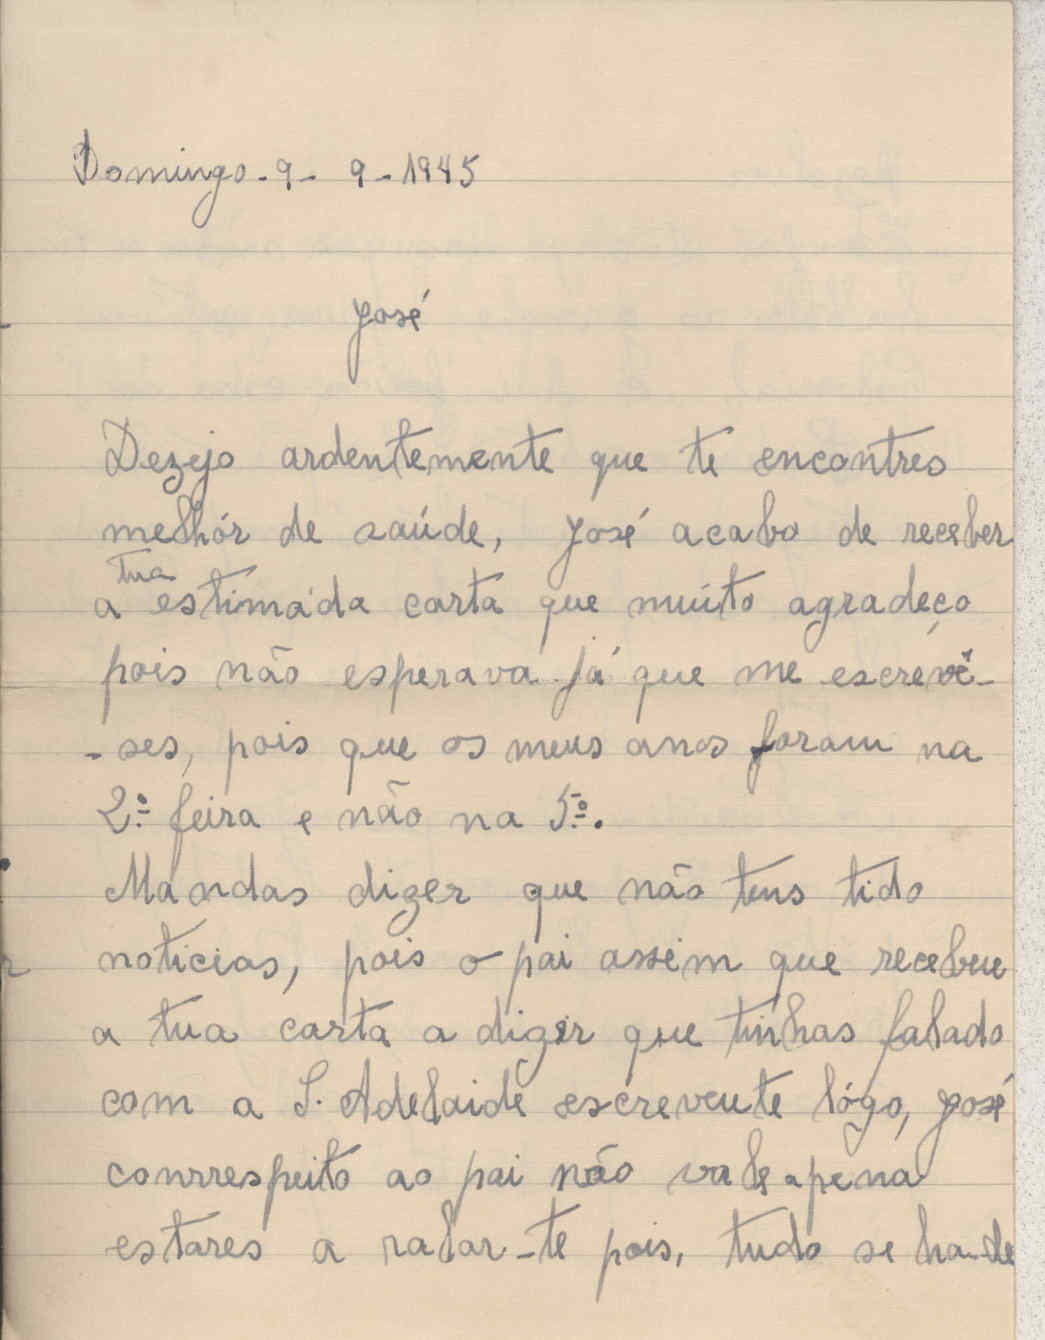 Domingo - 9 - 9 - 1945
José
Dezejo ardentemente que te encontres
melhór de saúde, José acabo de receber
tua
a estimáda carta que muito agradeço
pois não esperava já que me escrevê-
-ses, pois que os meus anos foram na
2.º feira e não na 5.º.
Mandas dizer que não tens tido
noticias, pois o pai assim que recebeu
a tua carta a dizer que tinhas falado
com a S. Adelaide escreveu te lógo, José
conrrespeito ao pai não vale apena
estares a ralar-te pois, tudo se ha-de